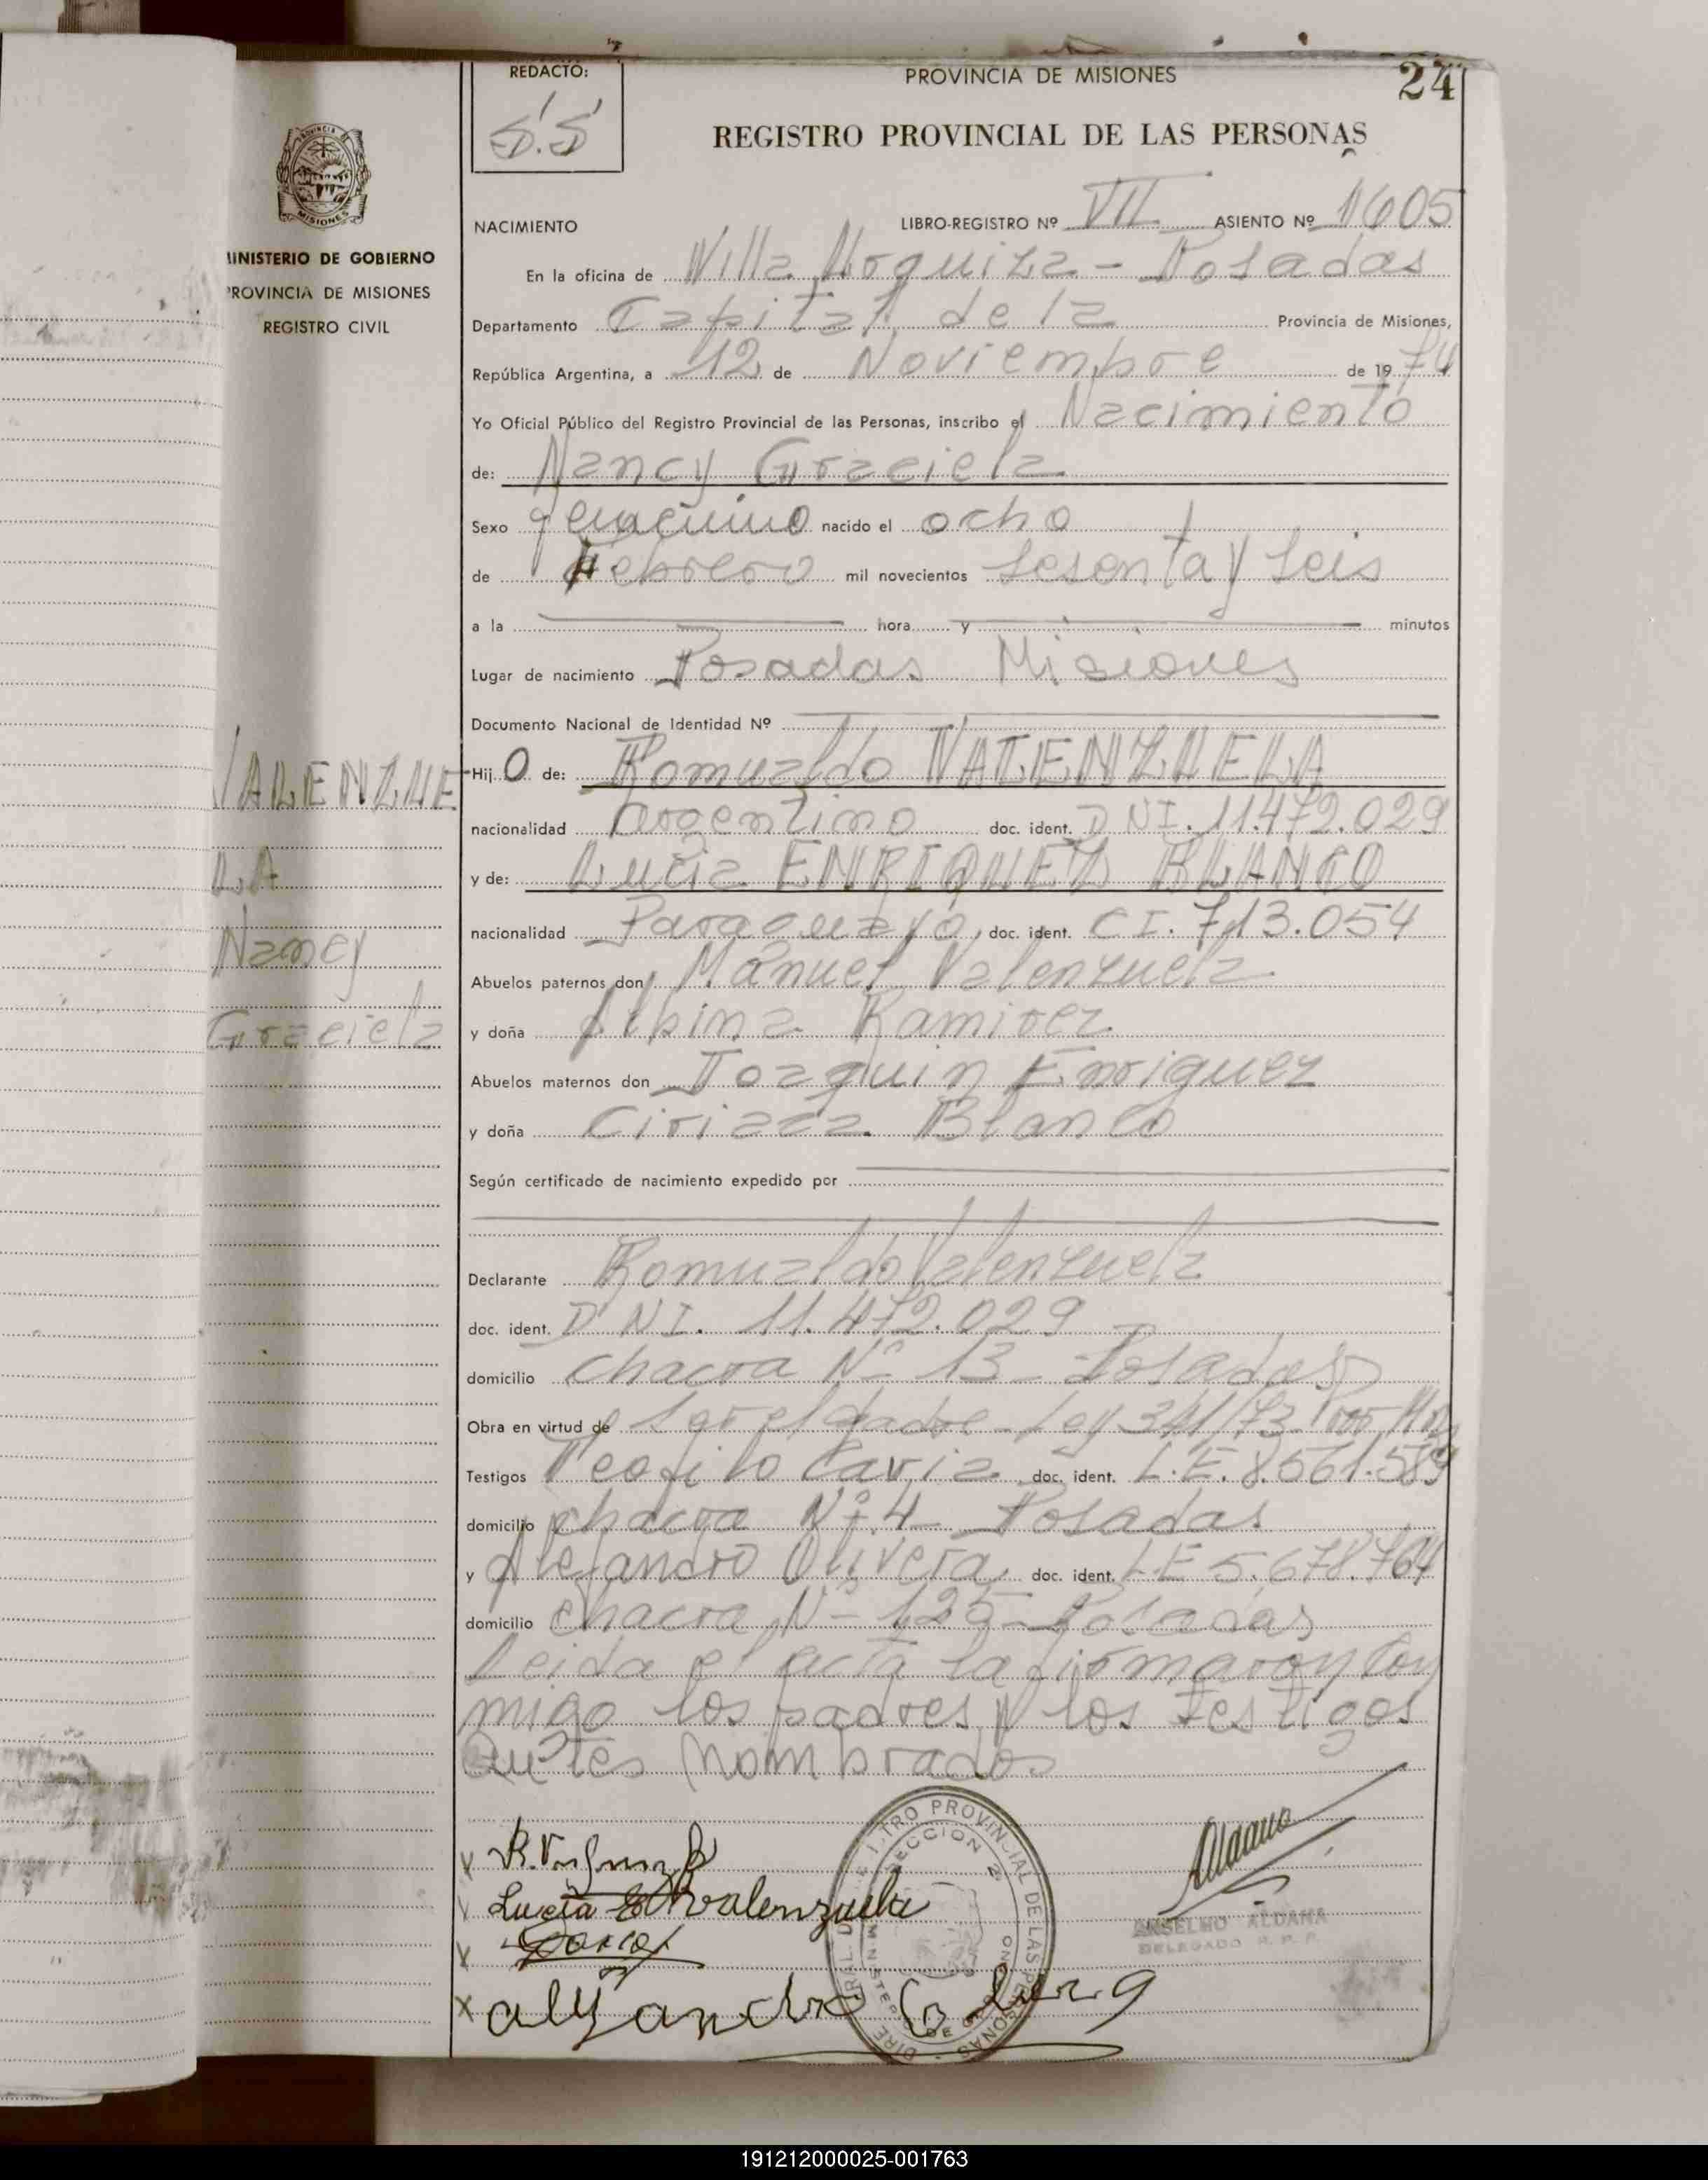 REDACTÓ:
S.S
PROVINCIA DE MISIONES
24
REGISTRO PROVINCIAL DE LAS PERSONAS
MISIONES
MINISTERIO DE GOBIERNO
PROVINCIA DE MISIONES
REGISTRO CIVIL
NACIMIENTO LIBRO-REGISTRO Nº VII ASIENTO Nº 1605
En la oficina de Villa Urquiza - Posadas
Departamento Capital de la Provincia de Misiones,
República Argentina, a 12 de Noviembre de 1974
Yo Oficial Público del Registro Provincial de las Personas, inscribo el Nacimiento
de: Nancy Graciela
Sexo femenino nacido el ocho
de Febrero mil novecientos sesenta y seis
a la hora y minutos
Lugar de nacimiento Posadas Misiones
Documento Nacional de Identidad Nº
VALENZUE
LA
Nancy
Graciela
Hij o de: Romualdo VALENZUELA
nacionalidad argentino doc. ident. DNI. 11.472.029
y de: Lucia ENRIQUEZ BLANCO
nacionalidad Paraguaya doc. ident. CI. 713.054
Abuelos paternos don Manuel Valenzuela
y doña Albina Ramirez
Abuelos maternos don Joaquin Enriquez
y doña Ciriaca Blanco
Según certificado de nacimiento expedido por
Declarante Romualdo Valenzuela
doc. ident. DNI. 11.472.029
domicilio chacra Nº 13 - Posadas
Obra en virtud de ser el padre - Ley 341/73
Testigos Teofilo doc. ident. L.E. 8.561.589
domicilio chacra Nº 4 - Posadas
y Alejandro Olivera doc. ident. LE 5.678.764
domicilio chacra Nº 125 - Posadas
Leida el acta la firmaron con
migo los padres y los testigos
antes nombrados
Lucia E de Valenzuela
Aldana
ANSELMO ALDANA
DELEGADO R. P. P.
191212000025-001763